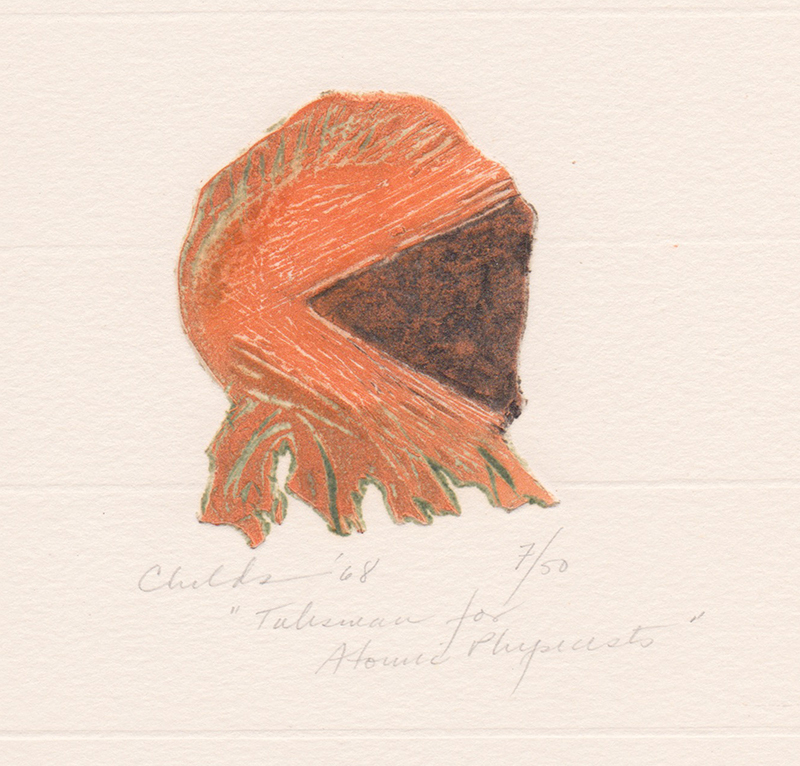 Childs '68 7/50
"Talisman for
Atomic Physicists"